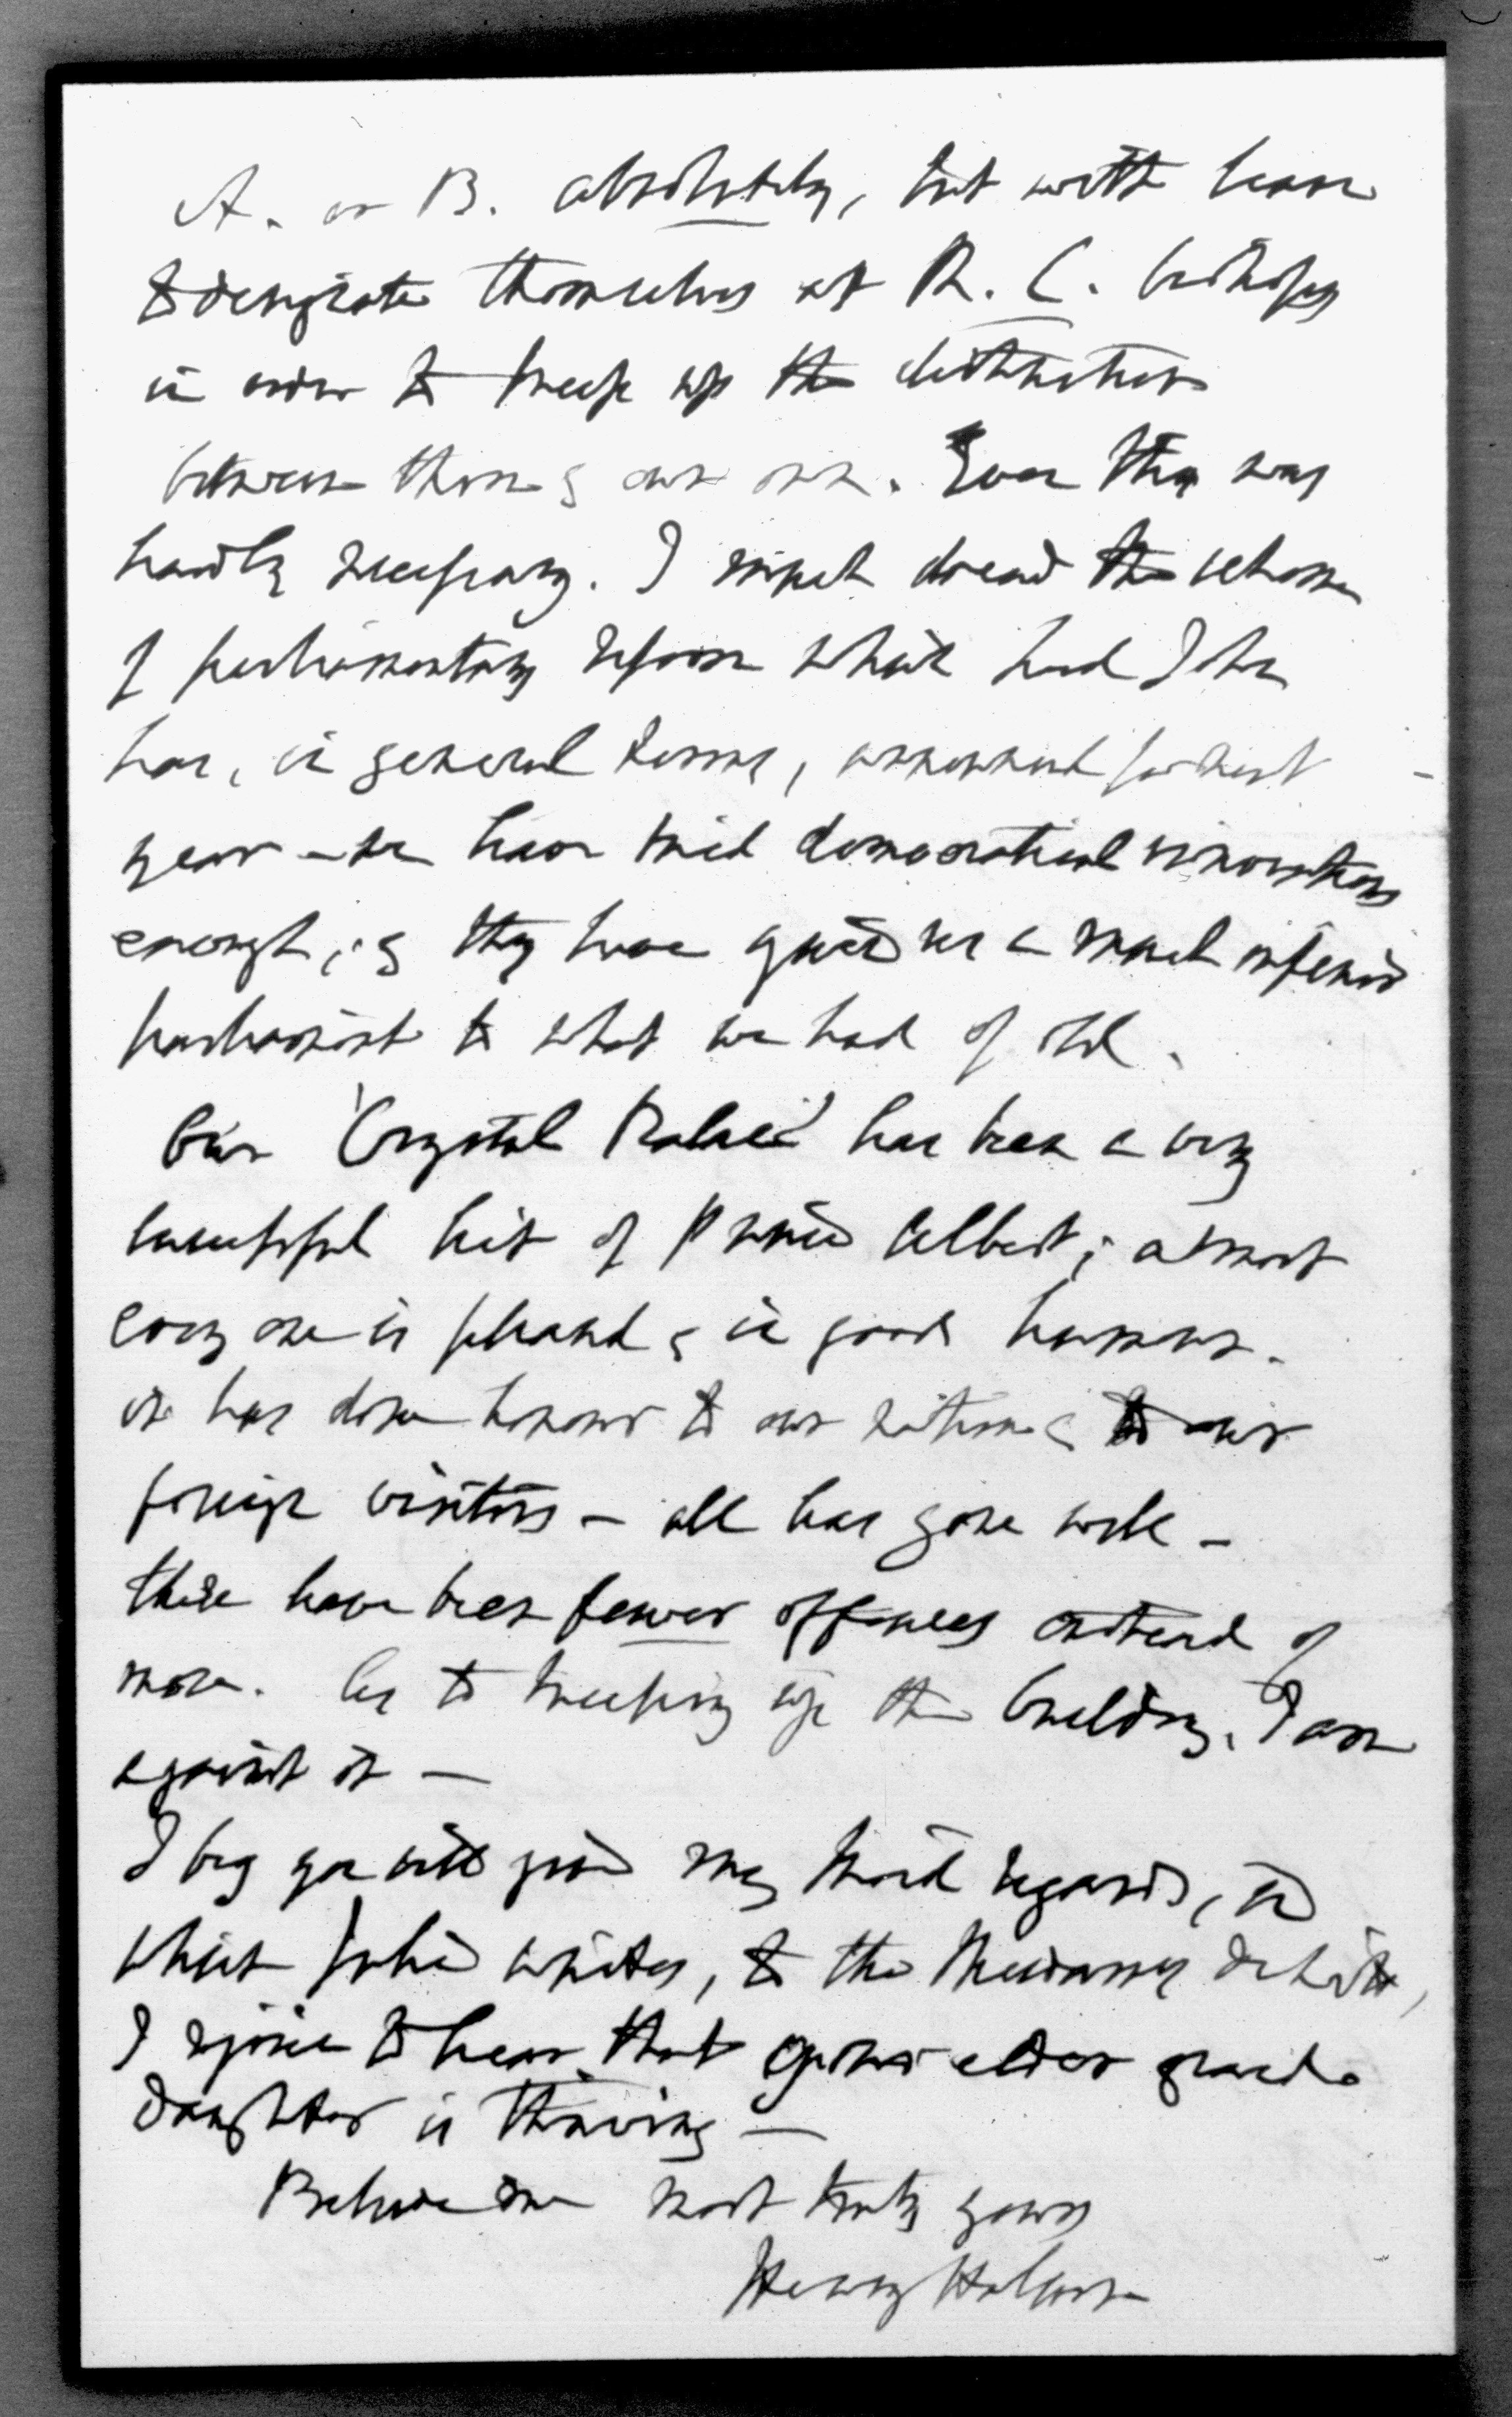 A. or B. absolutely, but with leave
to designate themselves as R. C. bishops
in order to keep up the distinction
between them & our own. Even this was
hardly necessary. I much dread the scheme
of parliamentary reform which Lord John
has, in general terms, announced for next
year - we have tried democratical innovations
enough, & they have given us a much inferior
parliament to what we had of old.
Our 'Crystal Palace' has been a very
successful hit of Prince Albert; almost
every one is pleased & in good humour.
it has done honour to our nation & to our
foreign visitors - all has gone well -
there have been fewer offences instead of
more. As to keeping up the building, I am
against it -
I beg you will give my kind regards, in
which Julia unites, to the
I rejoice to hear that your elder grand
daughter is thriving -
Believe me most truly yours
Henry